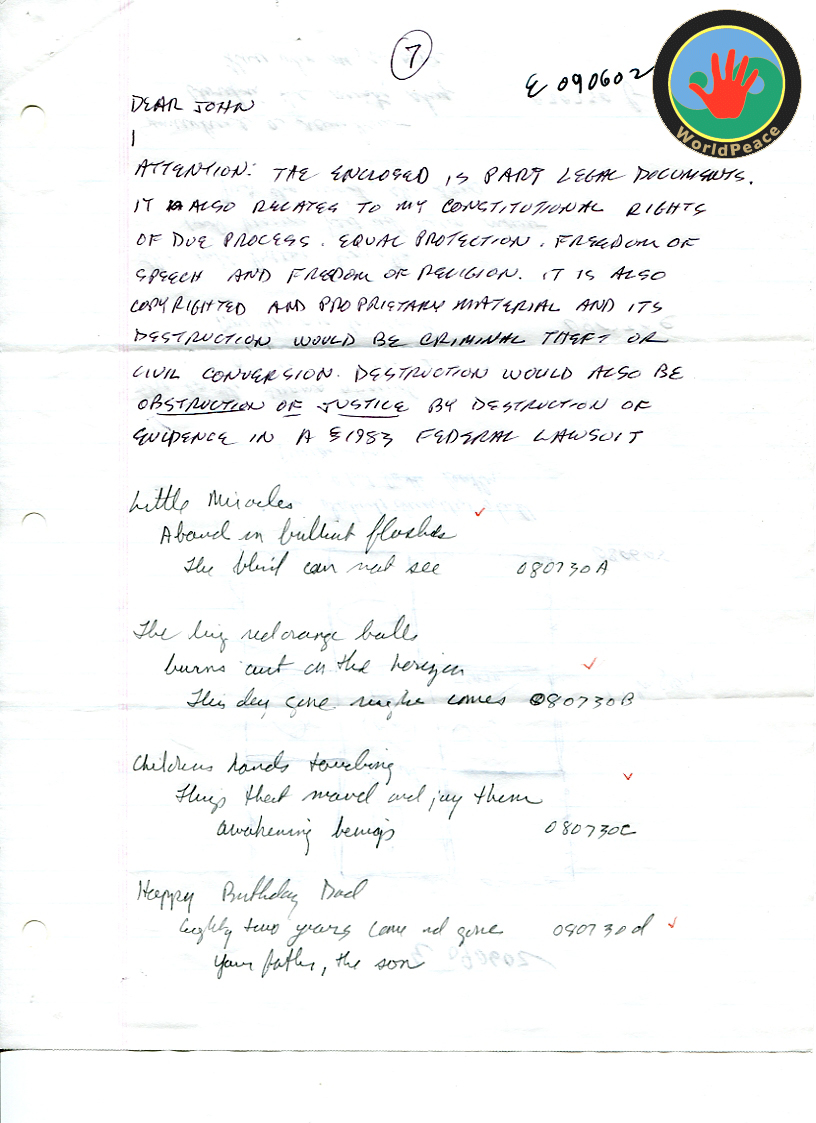 7
E 090602
WorldPeace
DEAR JOHN
ATTENTION: THE ENCLOSED IS PART LEGAL DOCUMENTS.
IT ALSO RELATES TO MY CONSTITUTIONAL RIGHTS
OF DUE PROCESS. EQUAL PROTECTION. FREEDOM OF
SPEECH AND FREEDOM OF RELIGION. IT IS ALSO
COPYRIGHTED AND PROPRIETARY MATERIAL AND ITS
DESTRUCTION WOULD BE CRIMINAL THEFT OR
CIVIL CONVERSION. DESTRUCTION WOULD ALSO BE
OBSTRUCTION OF JUSTICE BY DESTRUCTION OF
EVIDENCE IN A §1983 FEDERAL LAWSUIT
Little Miracles
in flashes
The blind can not see 080730A
The big red orange balls
burns out on the horizon
This day gone comes 080730B
Childrens hands touching
Things that and joy them
awakening 080730C
Happy Birthday Dad
Eighty two years come nd gone 080730d
your father, the son